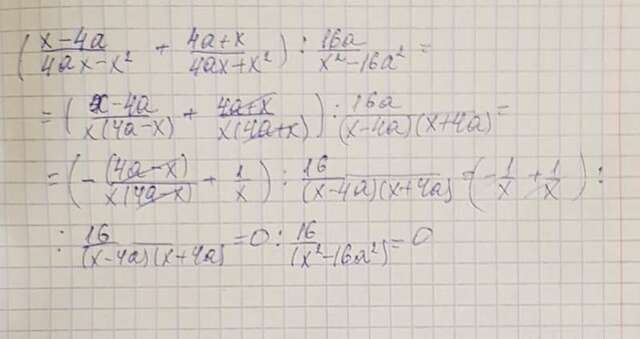 (x-4a/4ax-x² + 4a+x/4ax+x²) : 16a/x²-16a² =
= (x-4a/x(4a-x) + 4a+x/x(4a+x)) : 16a/(x-4a)(x+4a) =
= (-(4a-x)/x(4a-x) + 1/x) : 16/(x-4a)(x+4a) = (-1/x + 1/x) :
: 16/(x-4a)(x+4a) = 0 : 16/(x²-16a²) = 0